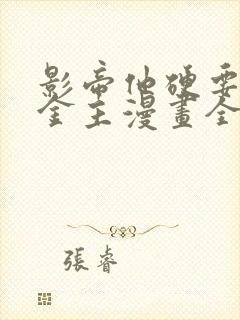 影帝他硬要
金主漫畫全
張睿